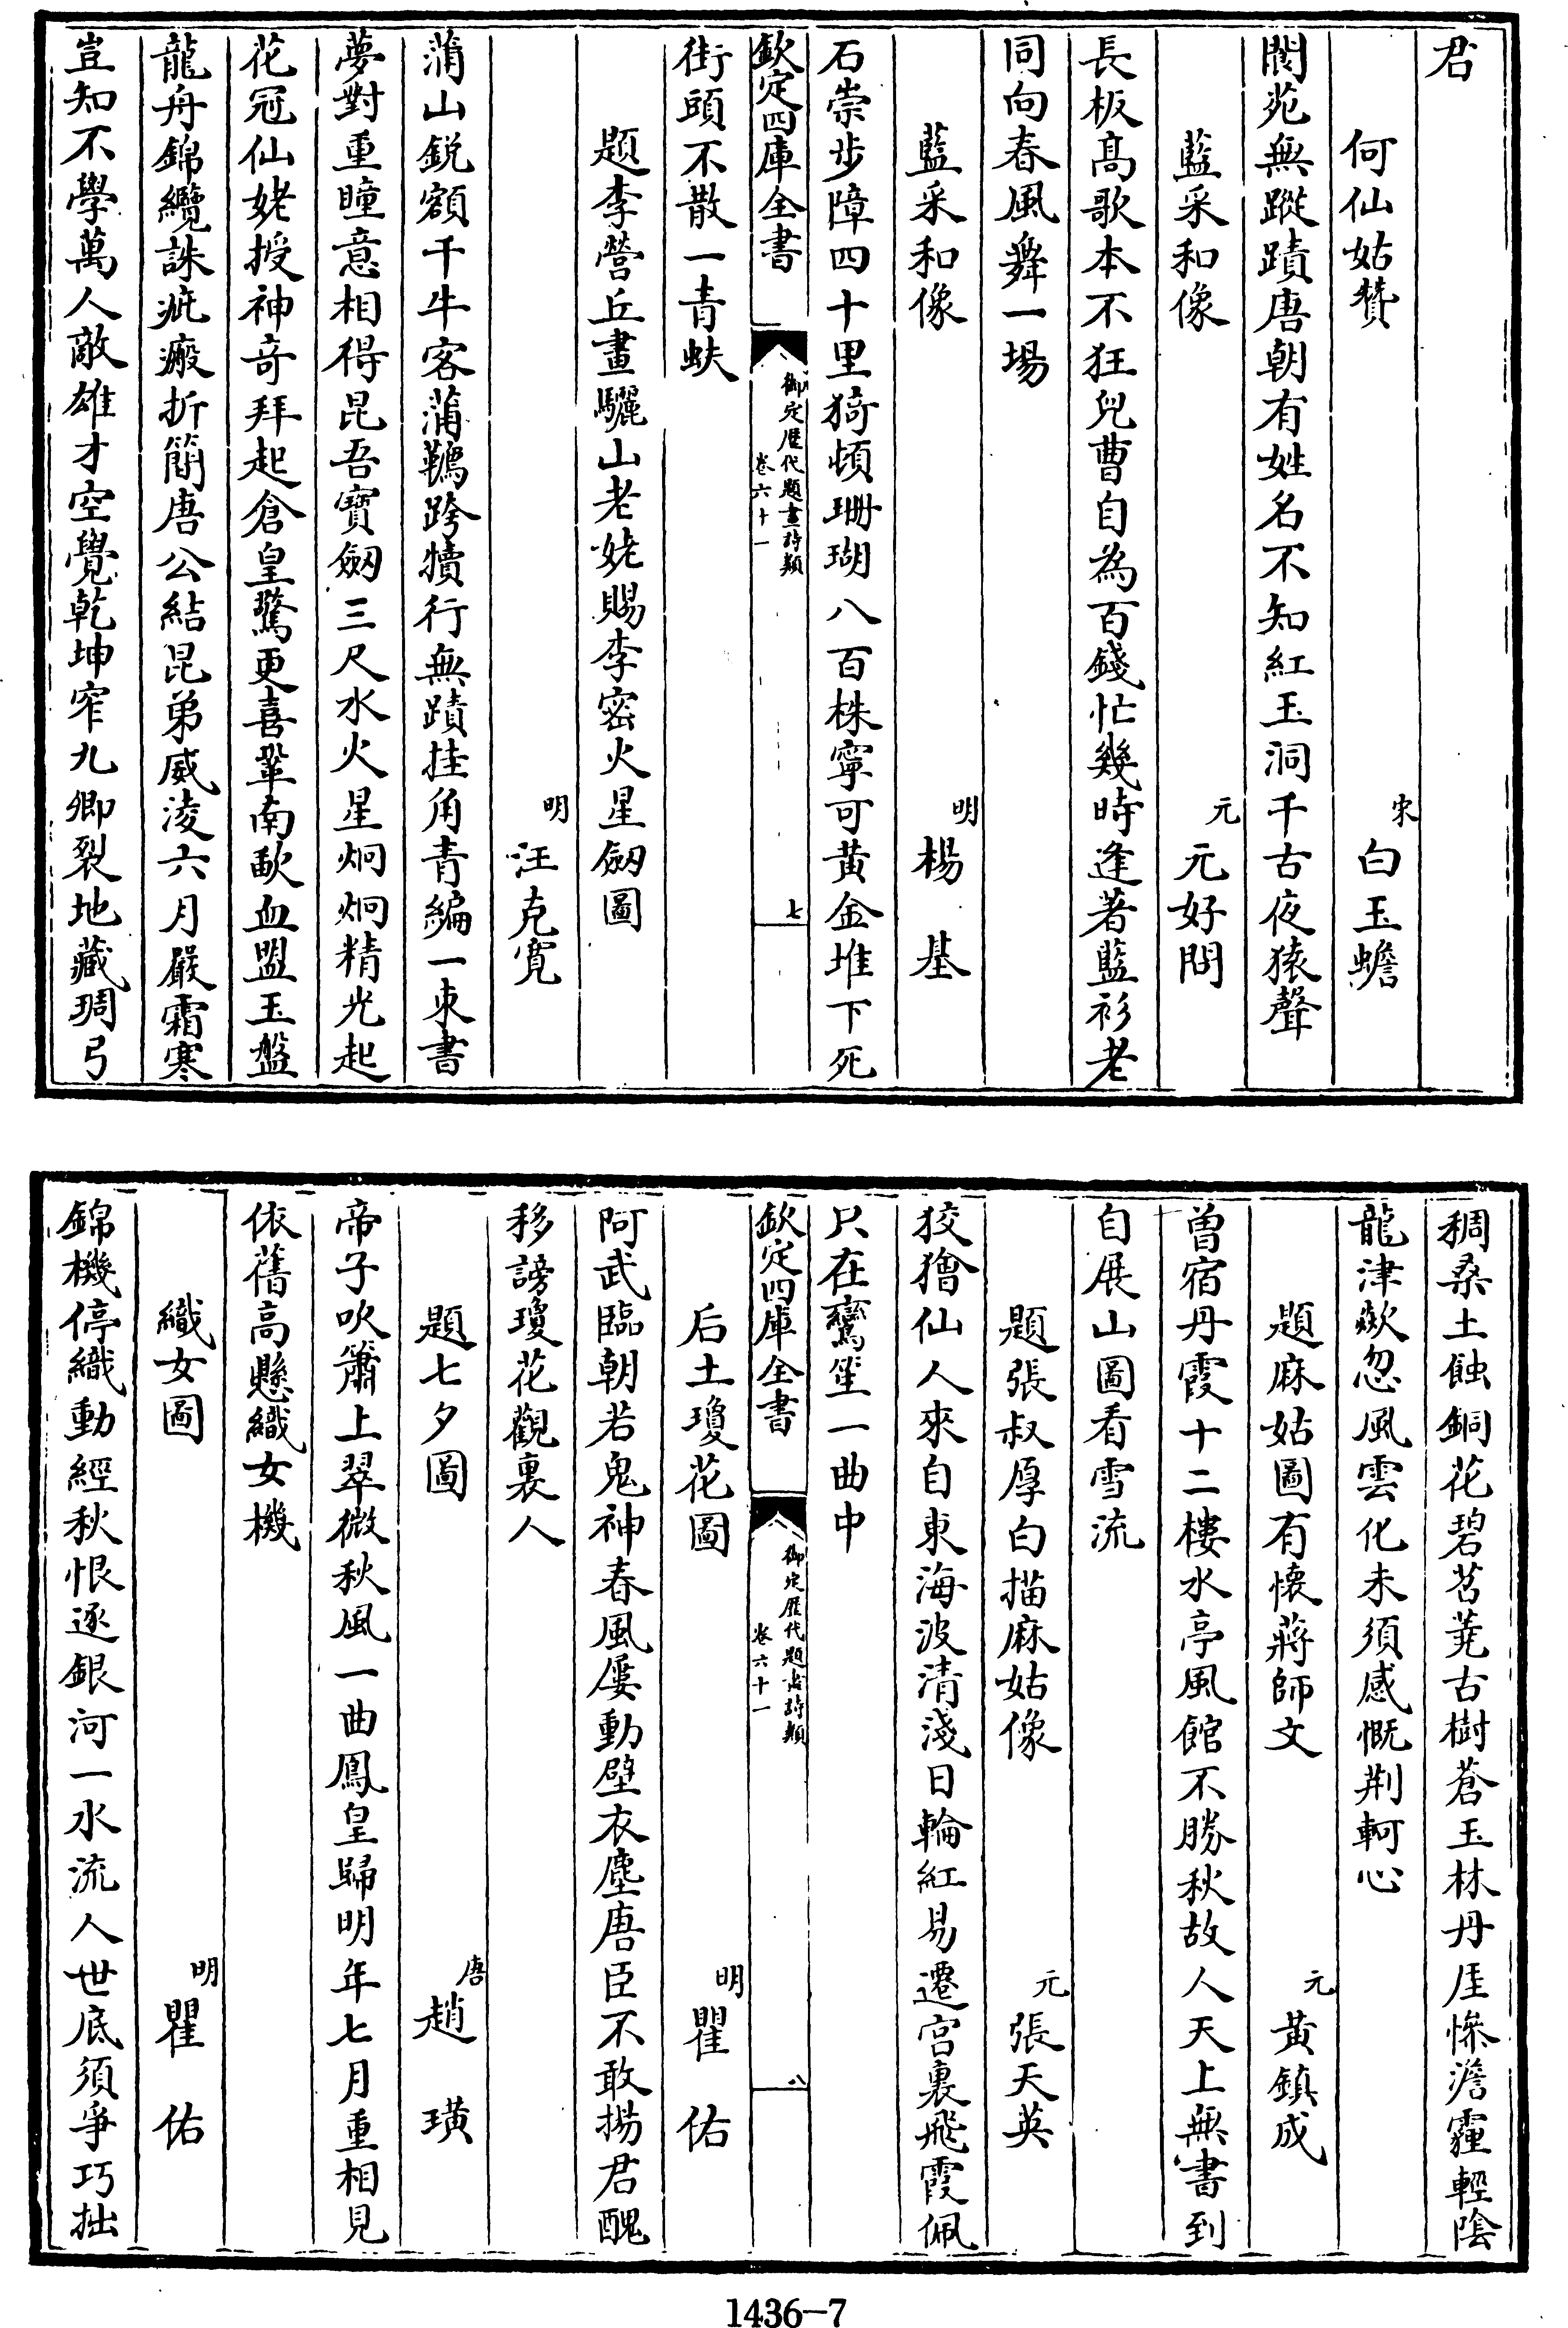 君
何仙姑贊
宋
白玉蟾
閬苑無蹤蹟唐朝有姓名不知紅玉洞千古夜猿聲
藍采和像
元
元好問
長板高歌本不狂兒曹自為百錢忙幾時逢著藍衫老
同向春風舞一場
藍采和像
明
楊基
石崇步障四十里猗頓珊瑚八百株寧可黃金堆下死
欽定四庫全書
御定歷代題畫詩類
卷六十一
七
街頭不散一青蚨
題李營丘畫驪山老姥賜李密火星劒圖
明
汪克寛
蒲山銳額千牛客蒲韉跨犢行無蹟挂角青編一束書
夢對重瞳意相得昆吾寶劒三尺水火星炯炯精光起
花冠仙姥授神竒拜起倉皇驚更喜鞏南歃血盟玉盤
龍舟錦纜誅疵瘢折簡唐公結昆弟威淩六月嚴霜寒
豈知不學萬人敵雄才空覺乾坤窄九卿裂地藏琱弓
稠桑土蝕銅花碧苕荛古樹蒼玉林丹厓慘澹霾輕陰
龍津歘忽風雲化未須感慨荆軻心
題麻姑圖有懐蔣師文
元
黃鎮成
曽宿丹霞十二樓水亭風館不勝秋故人天上無書到
自展山圖看雪流
題張叔厚白描麻姑像
元
張天英
狡獪仙人來自東海波清淺日輪紅易遷宮裏飛霞佩
只在鸞笙一曲中
欽定四庫全書
御定歷代題畫詩類
卷六十一
八
后土瓊花圖
明
瞿佑
阿武臨朝若鬼神春風屢動壁衣塵唐臣不敢揚君醜
移謗瓊花觀裏人
題七夕圖
唐
趙璜
帝子吹簫上翠微秋風一曲鳳皇歸明年七月重相見
依舊高懸織女機
織女圖
明
瞿佑
錦機停織動經秋恨逐銀河一水流人世底須爭巧拙
1436-7